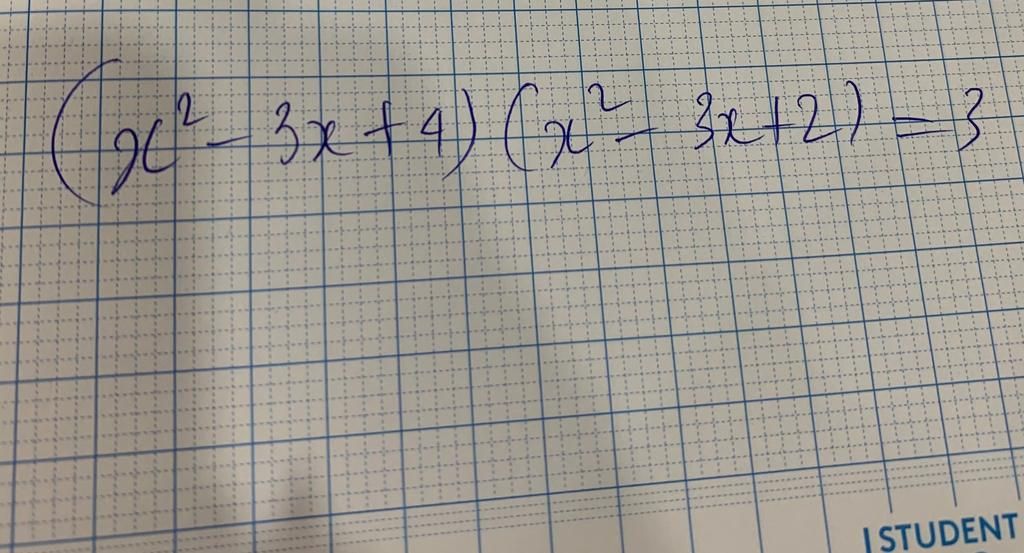 (x² - 3x + 4) (x² - 3x + 2) = 3
I STUDENT